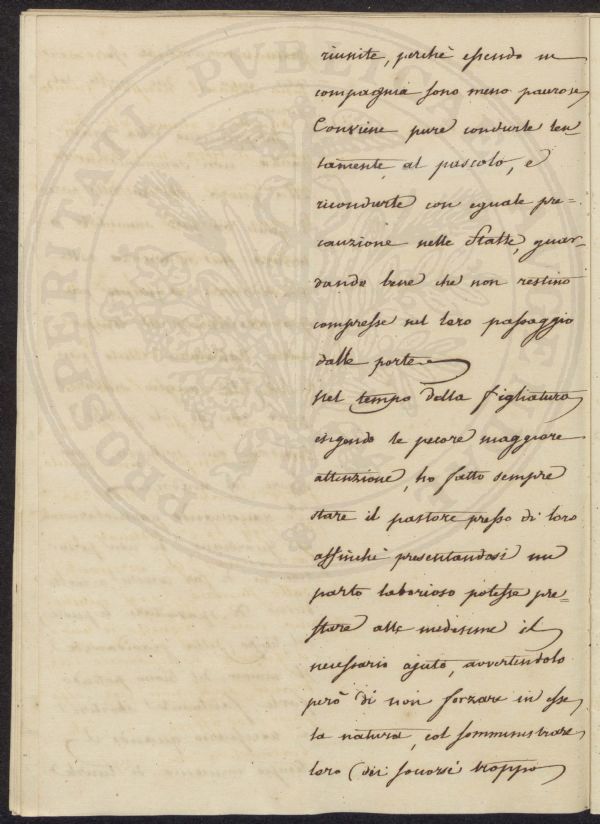 riunite, perchè essendo in
compagnia sono meno paurose
Conviene pure condurle len=
tamente al pascolo, e
ricondurle con eguale pre=
cauzione nelle Stalle, guar=
dando bene che non restino
compresse nel loro passaggio
dalle porte.
Nel tempo della figliatura
esigendo le pecore maggiore
attenzione, ho fatto sempre
stare il pastore presso di loro
affinchè presentandosi un
parto laborioso potesse pre=
stare alle medesime il
necessario ajuto, avvertendolo
però di non forzare in esse
la natura, col somministrare
loro dei soccorsi troppo
PROSPERITATI PVBLICAE